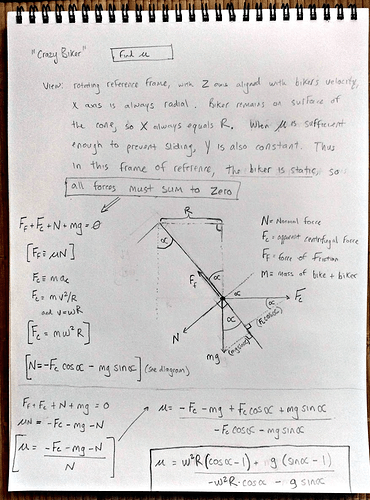 "Crazy Biker" Find μ
View: rotating reference frame, with Z axis aligned with biker's velocity,
X axis is always radial. Biker remains on surface of
the cone, so X always equals R. When μ is sufficient
enough to prevent sliding, Y is also constant. Thus
in this frame of reference, the biker is static, so
all forces must sum to zero
R
F_F+F_c+N+mg=0
[F_F≡μN]
F_c≡ma_c
F_c=mv²/R
and v=wR
[F_c=mw²R]
[N=-F_c cosα-mg sinα] (see diagram)
N=Normal Force
F_c=apparent centrifugal force
F_F=force of friction
m=mass of bike+biker
α
F_F
α
F_c
α
α
N
mg
(mg sinα)
(F_c cosα)
F_F+F_c+N+mg=0
μN=-F_c-mg-N
[μ=-F_c-mg-N/N]
μ=-F_c-mg+F_c cosα+mg sinα/-F_c cosα-mg sinα
μ=w²R(cosα-1)+g(sinα-1)/-w²R·cosα-g sinα